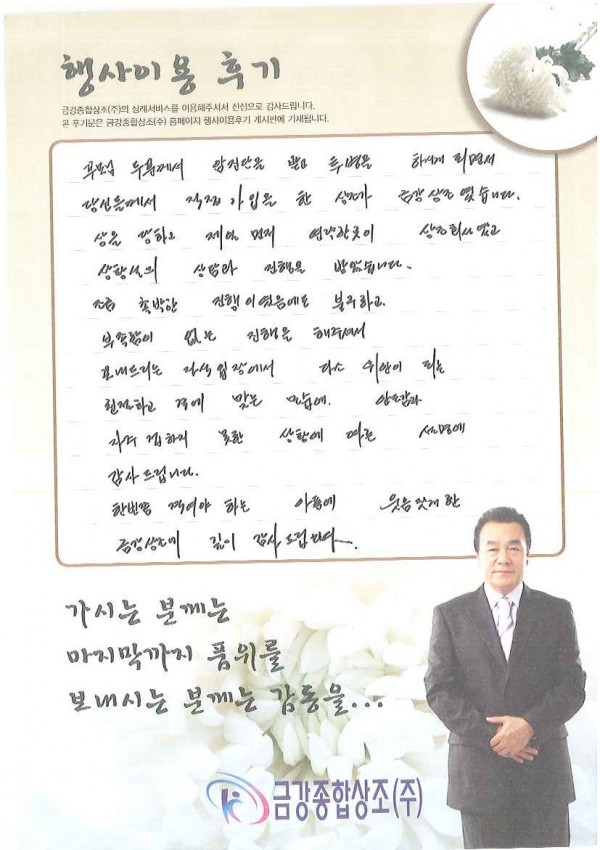 행사이용 후기
금강종합상조(주)의 장례서비스를 이용해주셔서 진심으로 감사드립니다.
본 후기문은 금강종합상조(주) 홈페이지 행사이용후기 게시판에 기재됩니다.
부모님 두분께서 암진단을 받고 투병을 하시게 되면서
당신들께서 직접 가입을 한 상조가 금강상조 였습니다.
상을 당하고 제일 먼저 연락한곳이 상조회사 였고
상황실의 상담과 진행을 받았습니다.
조금 촉박한 진행이였음에도 불구하고.
부족함이 없는 진행을 해주셔서
보내드리는 자식입장에서 다소 위안이 되는
친절하고 격에 맞는 모습에.
자격 접하지 못한 상황에 따른 설명에
감사드립니다.
한번쯤 겪어야 하는 아픔에 웃음짓게 한
금강상조에 깊이 감사드립니다.
가시는 분께는
마지막까지 품위를
보내시는 분께는 감동을...
금강종합상조(주)